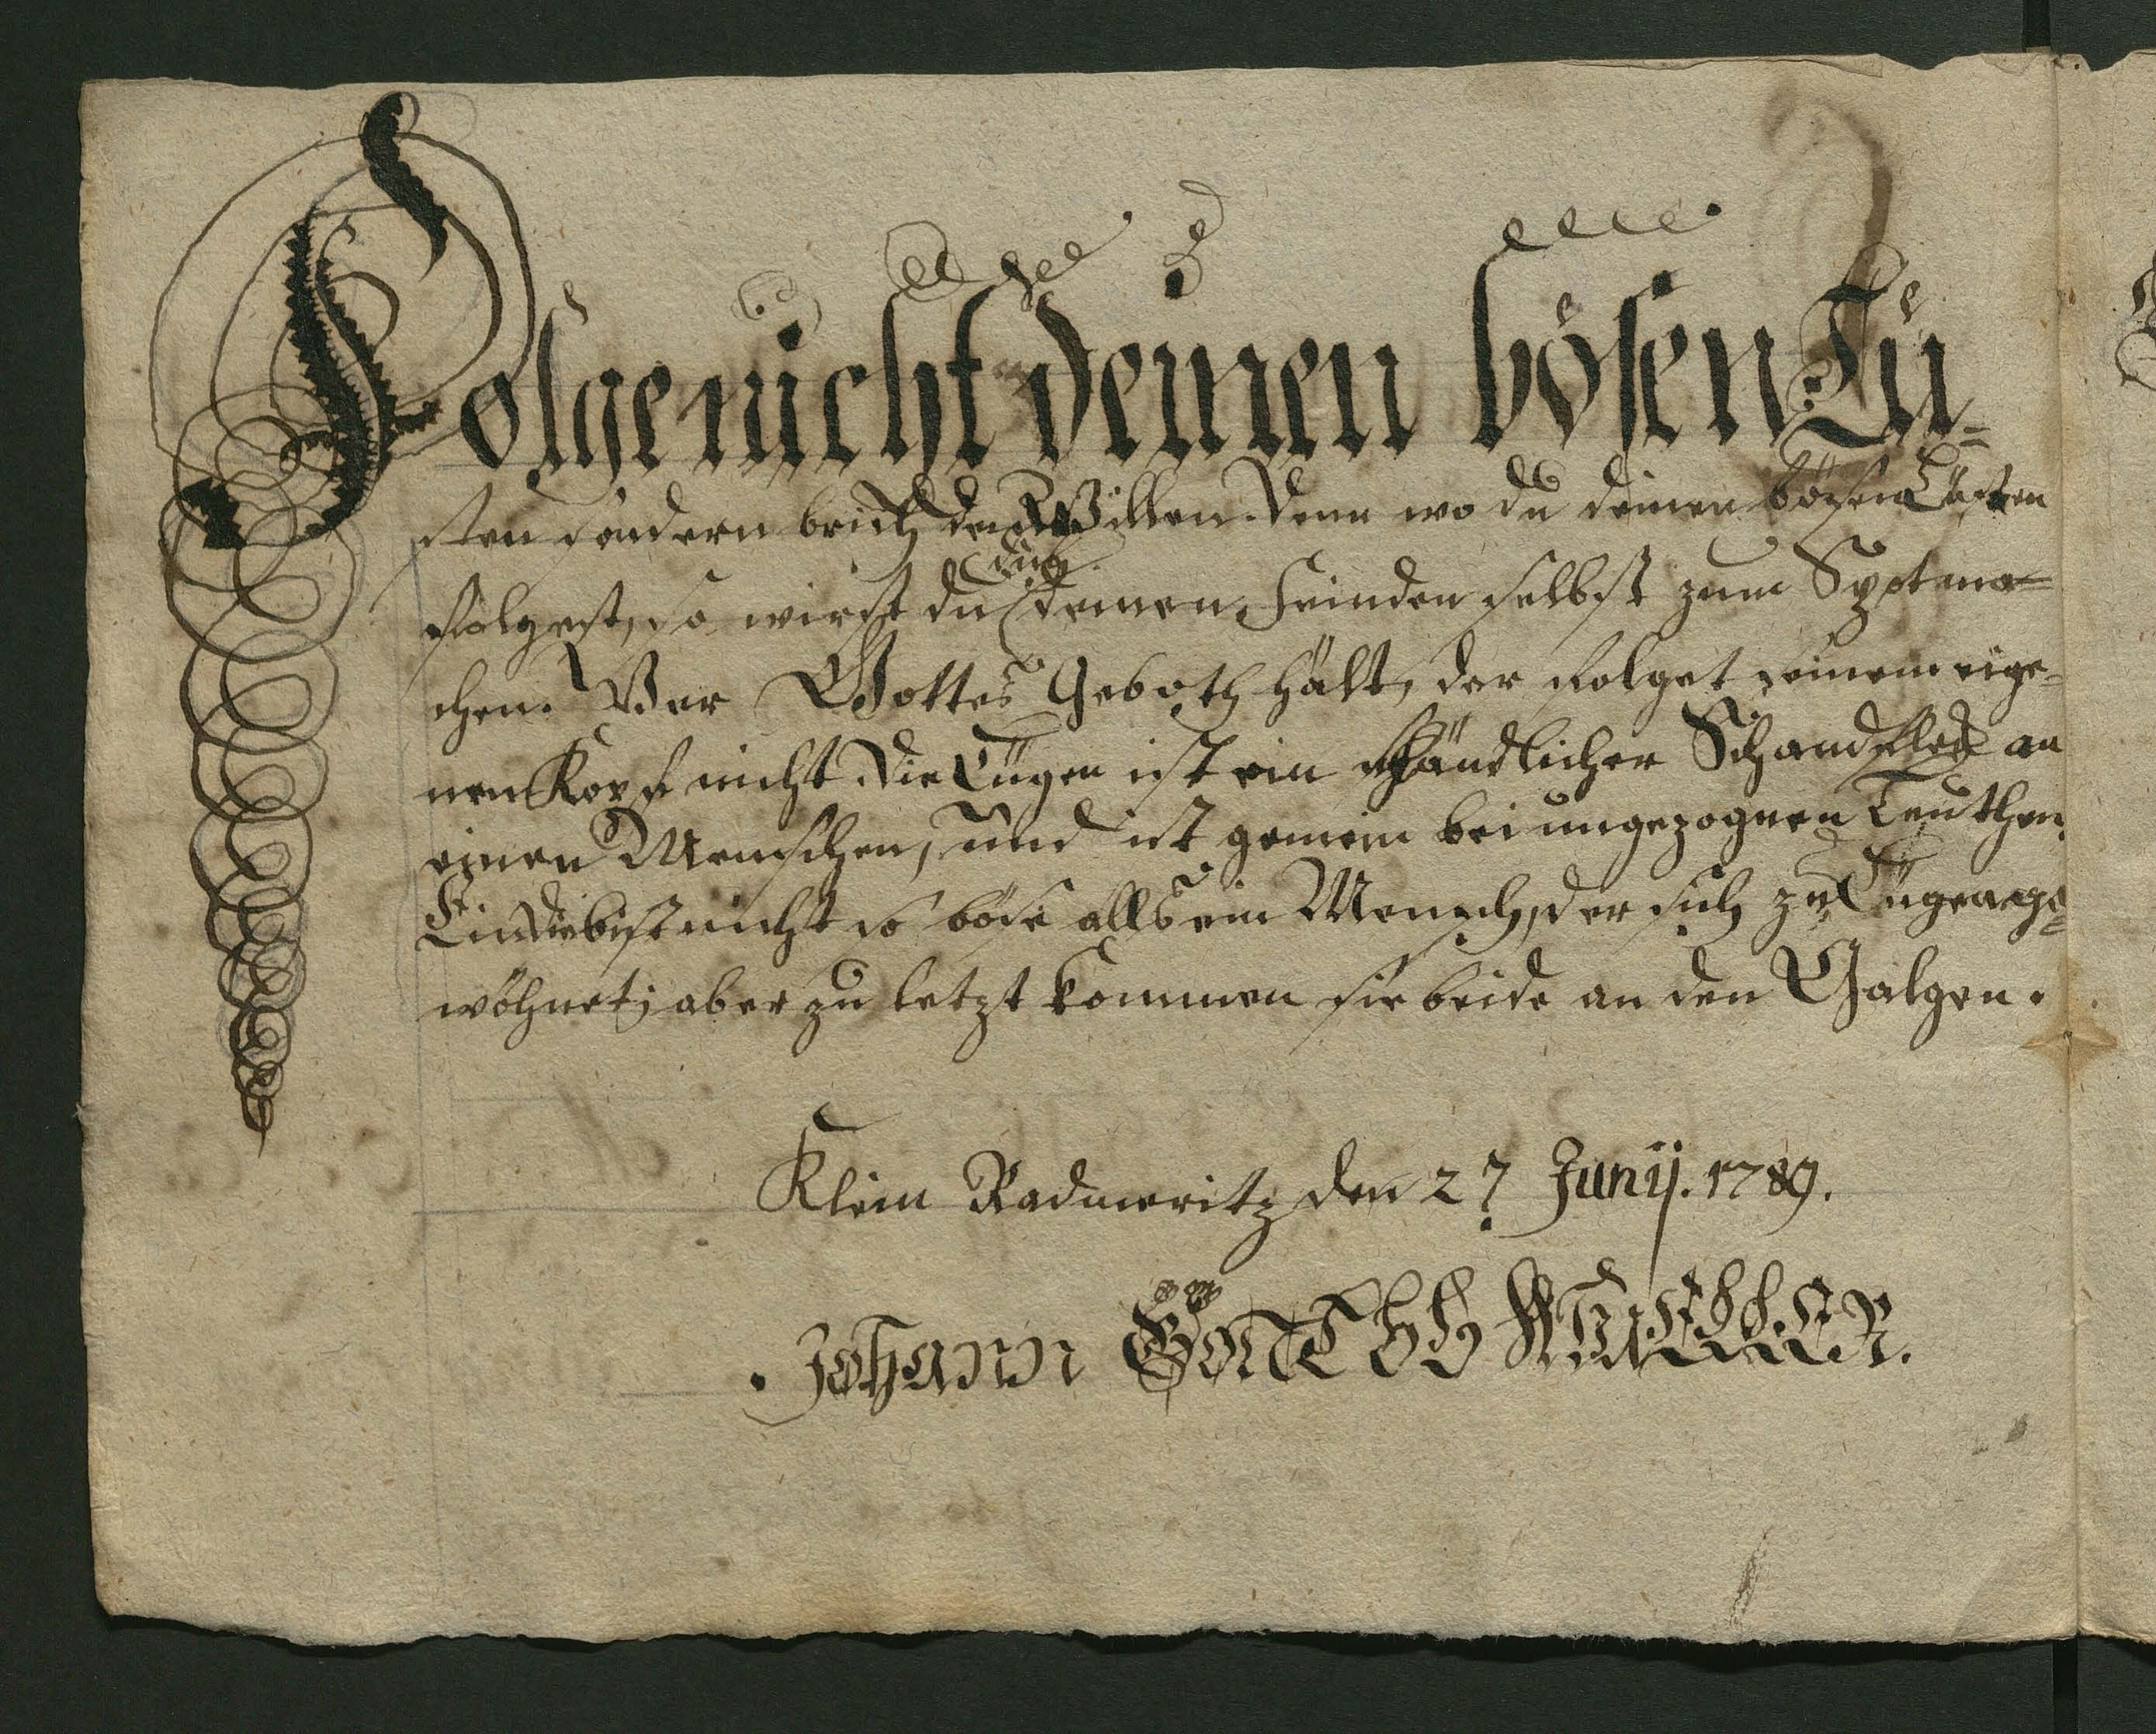 Folge nicht deinen bösen Lü-
sten sondern brich deinen Willen. Denn wo du deinen bösen Lüsten
dich
folgest, so wirst du deinen Feinden selbst zum Spot ma=
chen. Wer Gottes Geboth hält, der folget seinem eige-
nen Kopf nicht. Die Lügen ist ein schändlicher Schandfleck an
einen Menschen, und ist gemein bei ungezognen Leuthen.
Ein Dieb ist nicht so böse alls ein Mensch, der sich zu Lügen ge=
wöhnet; aber zu letzt kommen sie beide an den Galgen.
Klein Radmeritz den 27 Junij. 1789.
Johann